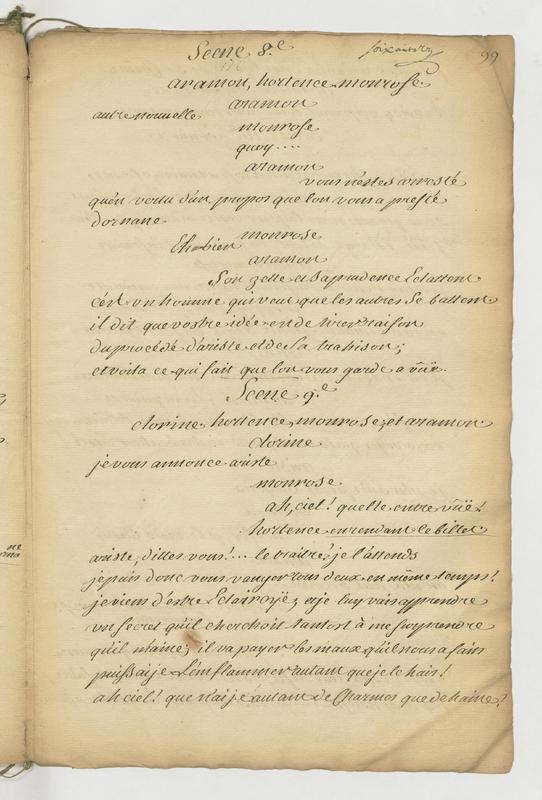 Scene 8.e
99
aramon, hortence, monrose.
aramon
autre nouvelle
monrose
quoy....
aramon
vous n'estes arresté
qu'en vertu d'un propos que l'on vous a presté
dornane
monrose
Eh bien
aramon
Son zelle et sa prudence Eclattent
c'est un homme qui veut que les autres se battent
il dit que vostre idée est de tirer raison
du procédé d'ariste et de sa trahison;
et voila ce qui fait que l'on vous garde a vüe.
Scene 9.e
clorine, hortence, monrose, et aramon.
clorine
je vous annonce ariste
monrose
ah, ciel! quelle entre vüe!
hortence en rendant le billet.
ariste, dittes vous!... le traitre! je l'attends
je puis donc vous vanger tous deux en même temps!
je viens d'estre Eclairoyée, et je luy vais apprendre
un secret qu'il cherchoit tantost à me surprendre
qu'il m'aime; il va payer les maux qu'il nous a faits
puissai je l'enflammer autant que je le hais!
ah ciel! que n'ai je autant de Charmes que de haine!